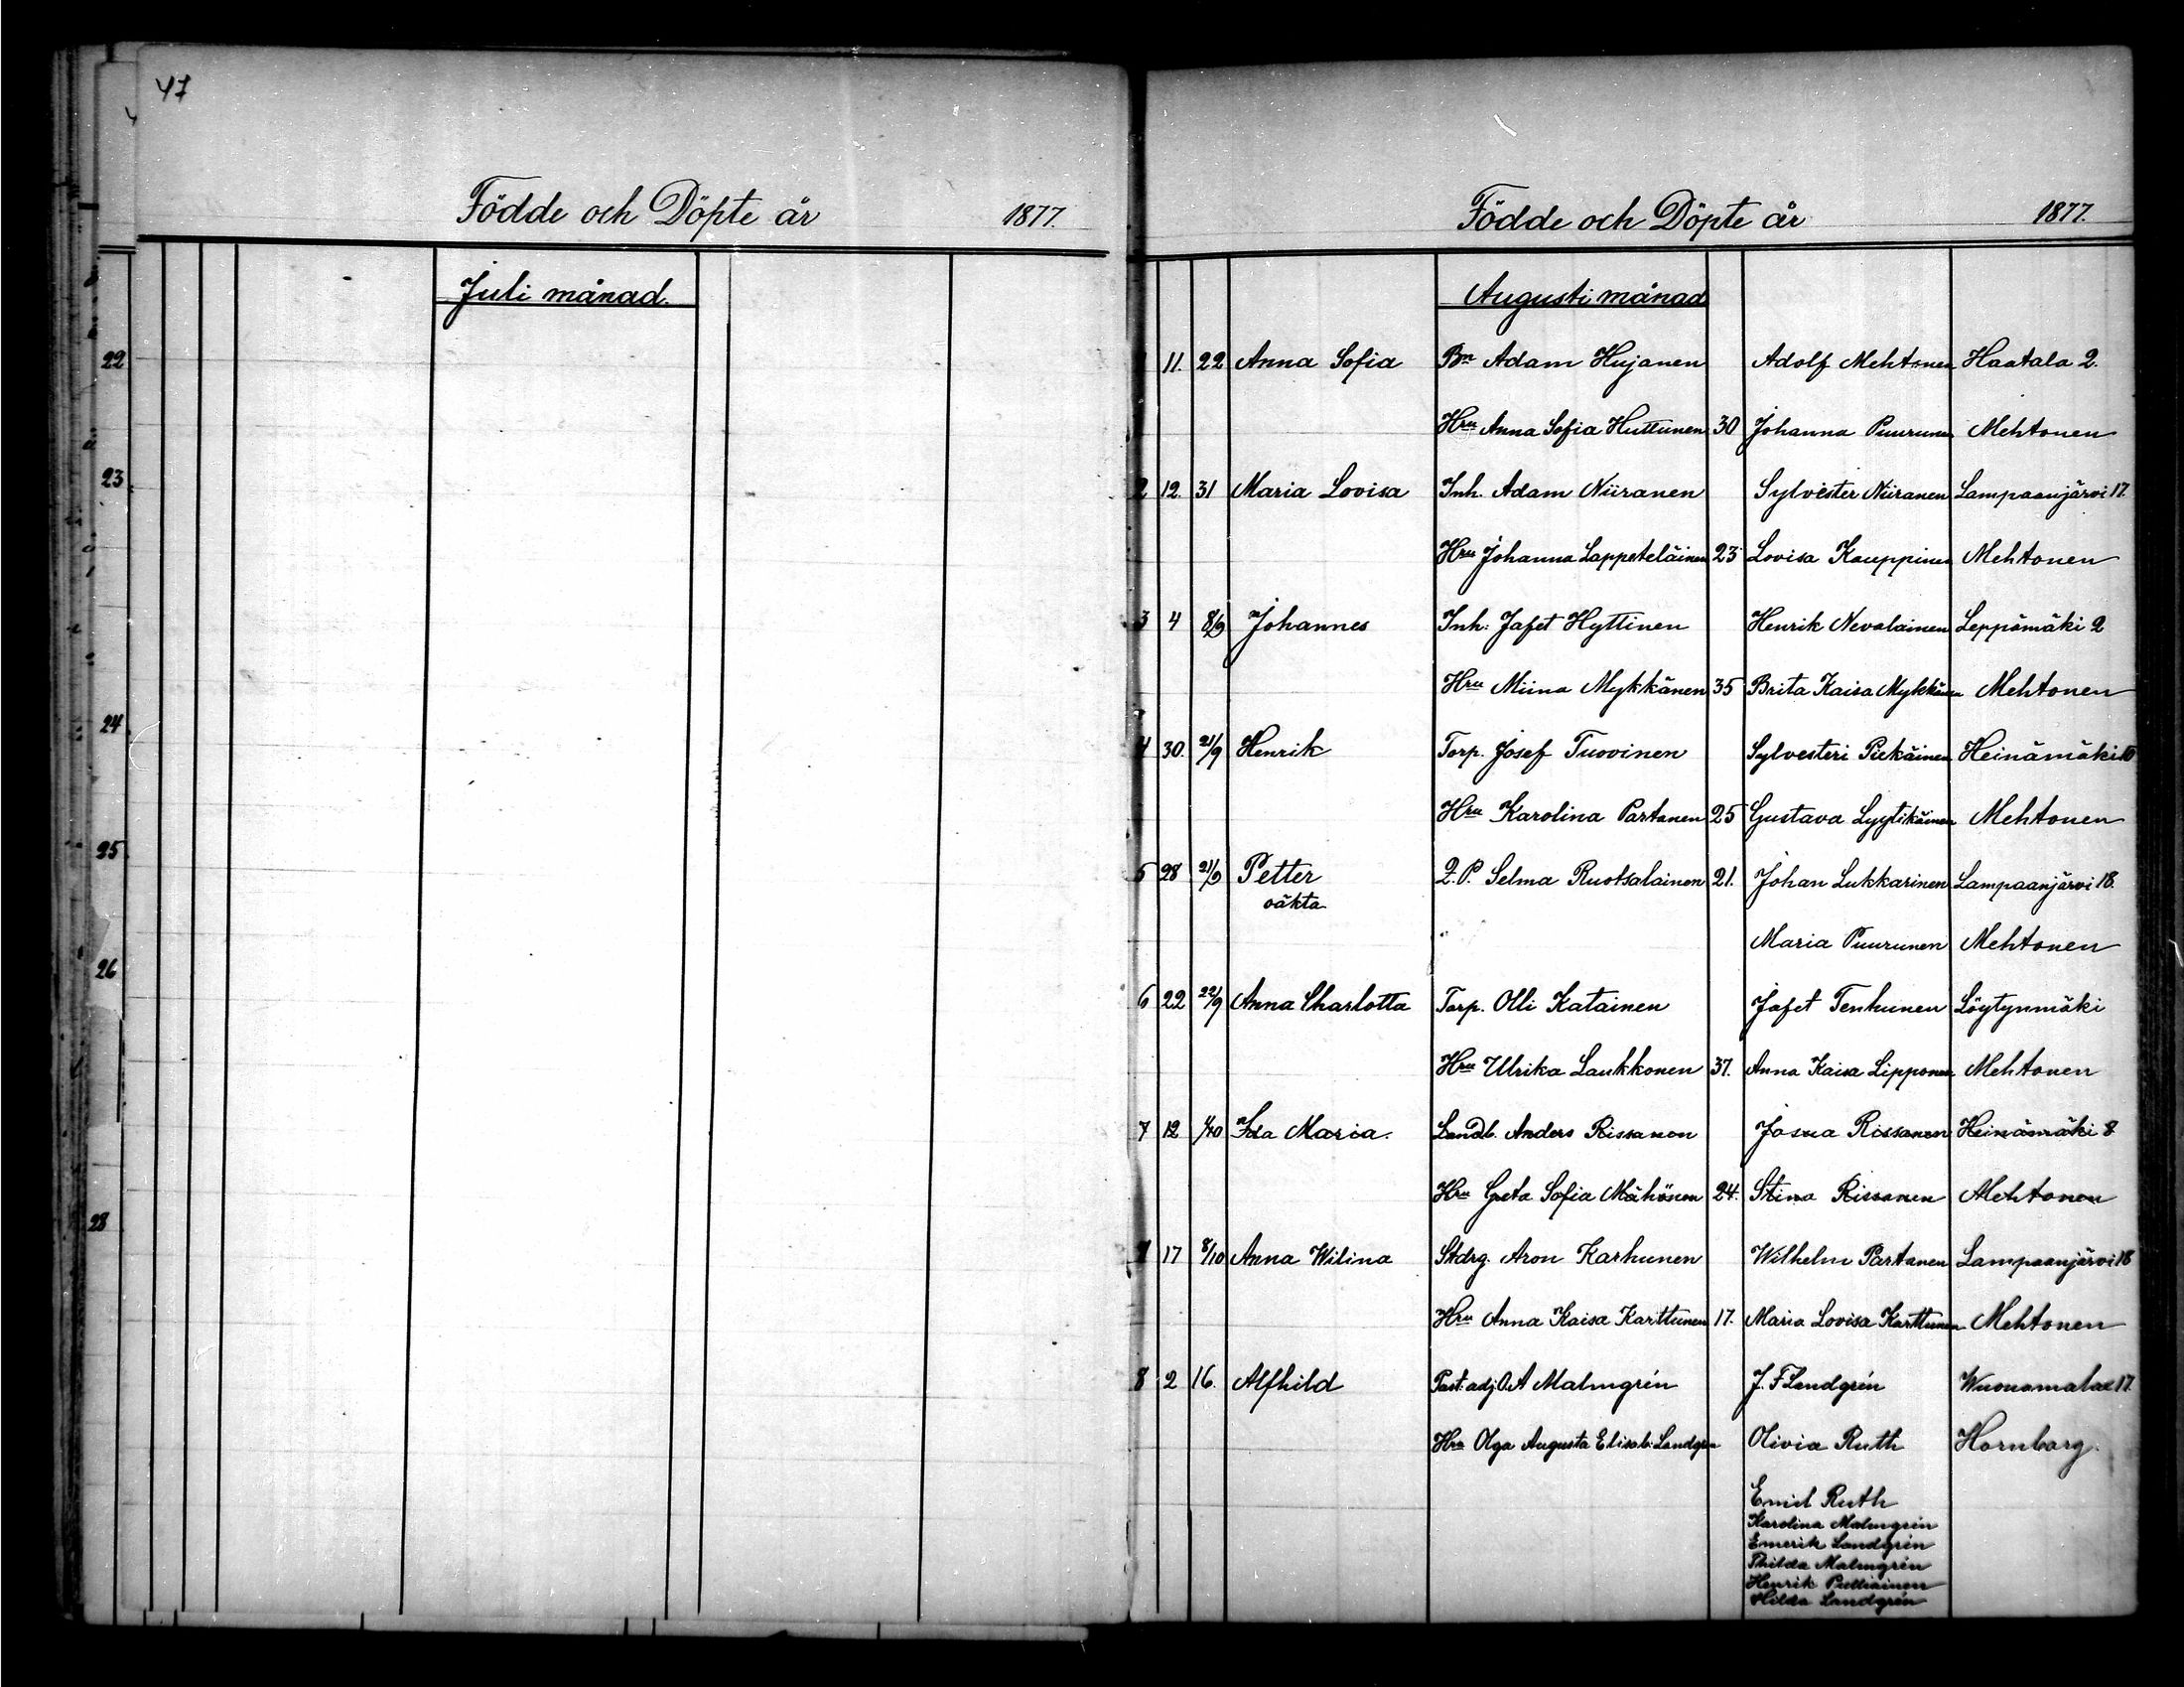 47
Födde och Döpte år 1877.
Juli månad.
22
23
24
25
26
28
Födde och Döpte år 1877.
Augusti månad
11. 22 Anna Sofia Bn Adam Hujanen Adolf Mehtonen Haatala 2.
Hru Anna Sofia Huttunen 30 Johanna Puurunen Mehtonen
2 12. 31 Maria Lovisa Inh. Adam Niiranen Sylvester Niiranen Lampaanjärvi 17.
Hru Johanna Lappeteläinen 23 Lovisa Kauppinen Mehtonen
3 4 8/9 Johannes Inh: Jafet Hyttinen Henrik Nevalainen Leppämäki 2
Hru Miina Mykkänen 35 Brita Kaisa Mykkänen Mehtonen
4 30. 21/9 Henrik Torp. Josef Tuovinen Sylvesteri Piekäinen Heinämäki 10
Hru Karolina Partanen 25 Gustava Lyytikäinen Mehtonen
5 28 21/9 Petter Q.P. Selma Ruotsalainen 21. Johan Lukkarinen Lampaanjärvi 18.
oäkta
Maria Puurunen Mehtonen
6 22 22/9 Anna Charlotta Torp. Olli Katainen Jafet Tenhunen Löytynmäki
Hru Ulrika Laukkonen 37. Anna Kaisa Lipponen Mehtonen
7 12 1/10 Ida Maria. Landb. Anders Rissanen Josua Rissanen Heinämäki 8
Hru Greta Sofia Mähönen 24. Stina Rissanen Mehtonen
17 8/10 Anna Wilina Stdrg. Aron Karhunen Wilhelm Partanen Lampaanjärvi 18
Hru Anna Kaisa Karttunen 17. Maria Lovisa Karttunen Mehtonen
8 2 16. Alfhild Past. adj. O.A Malmgrén J. F Landgrén Wuonamalax 17.
Hru Olga Augusta Elisab: Landgren Olivia Ruth Hornborg.
Emil Ruth
Karolina Malmgrén
Emerik Landgrén
Thilda Malmgrén
Henrik Pulliainen
Hilda Landgrén